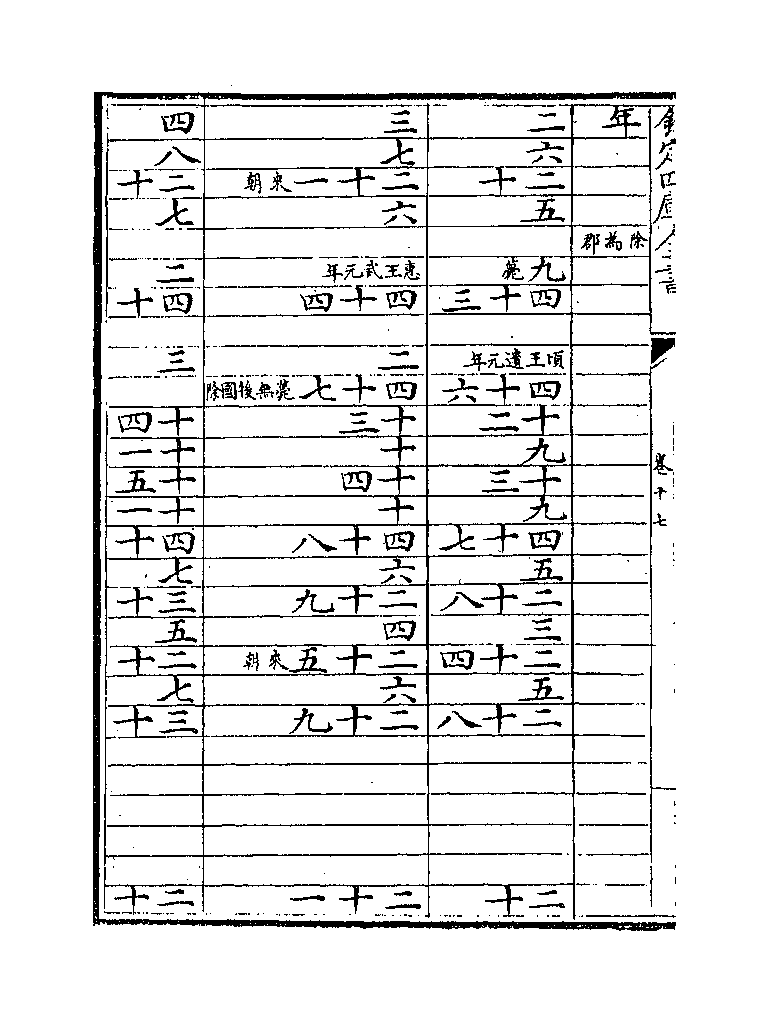 欽定四庫全書
卷十七
年
除為郡
二
六
二十
五
九薨
四十三
頃王遺元年
四十六
十二
九
十三
九
四十七
五
二十八
三
二十四
五
二十八
二十
三
七
二十一來朝
六
惠王武元年
四十四
二
四十七薨無後國除
十三
十
十四
十
四十八
六
二十九
四
二十五來朝
六
二十九
二十一
四
八
二十
七
二
四十
三
十四
十一
十五
十一
四十
七
三十
五
二十
七
三十
二十